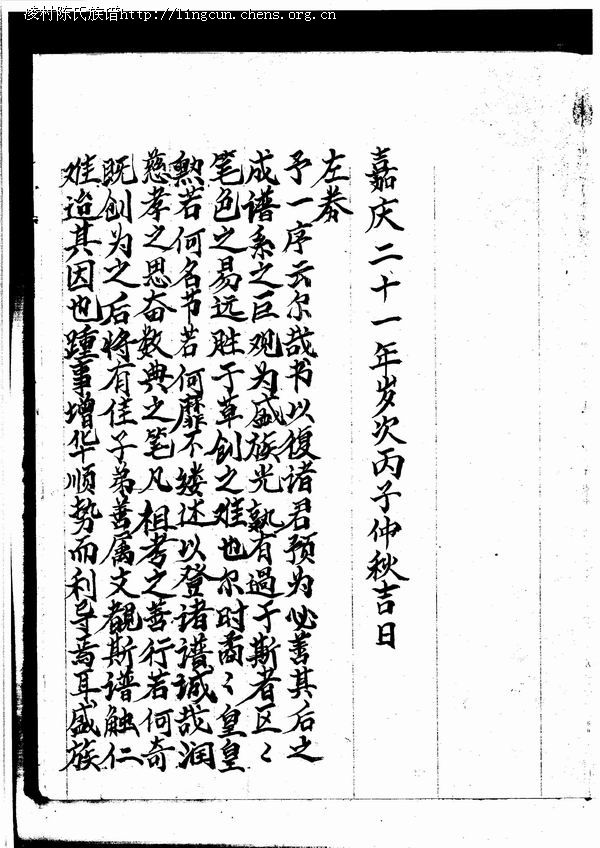 凌村陈氏族谱http://lingcun.chens.org.cn
难迨其因也踵事增华顺势而利导焉耳盛族
既创为之后将有佳子弟善属文觀斯谱触仁
慈孝之思奋数典之笔凡祖考之善行若何奇
勲若何名节若何靡不缕述以登诸譜诚哉润
笔色之易远胜于草创之难也尔时矞〻皇皇
成谱系之巨观为盛族光孰有過于斯者区〻
予一序云尔哉书以復诸君预为必善其后之
左券
嘉庆二十一年岁次丙子仲秋吉日